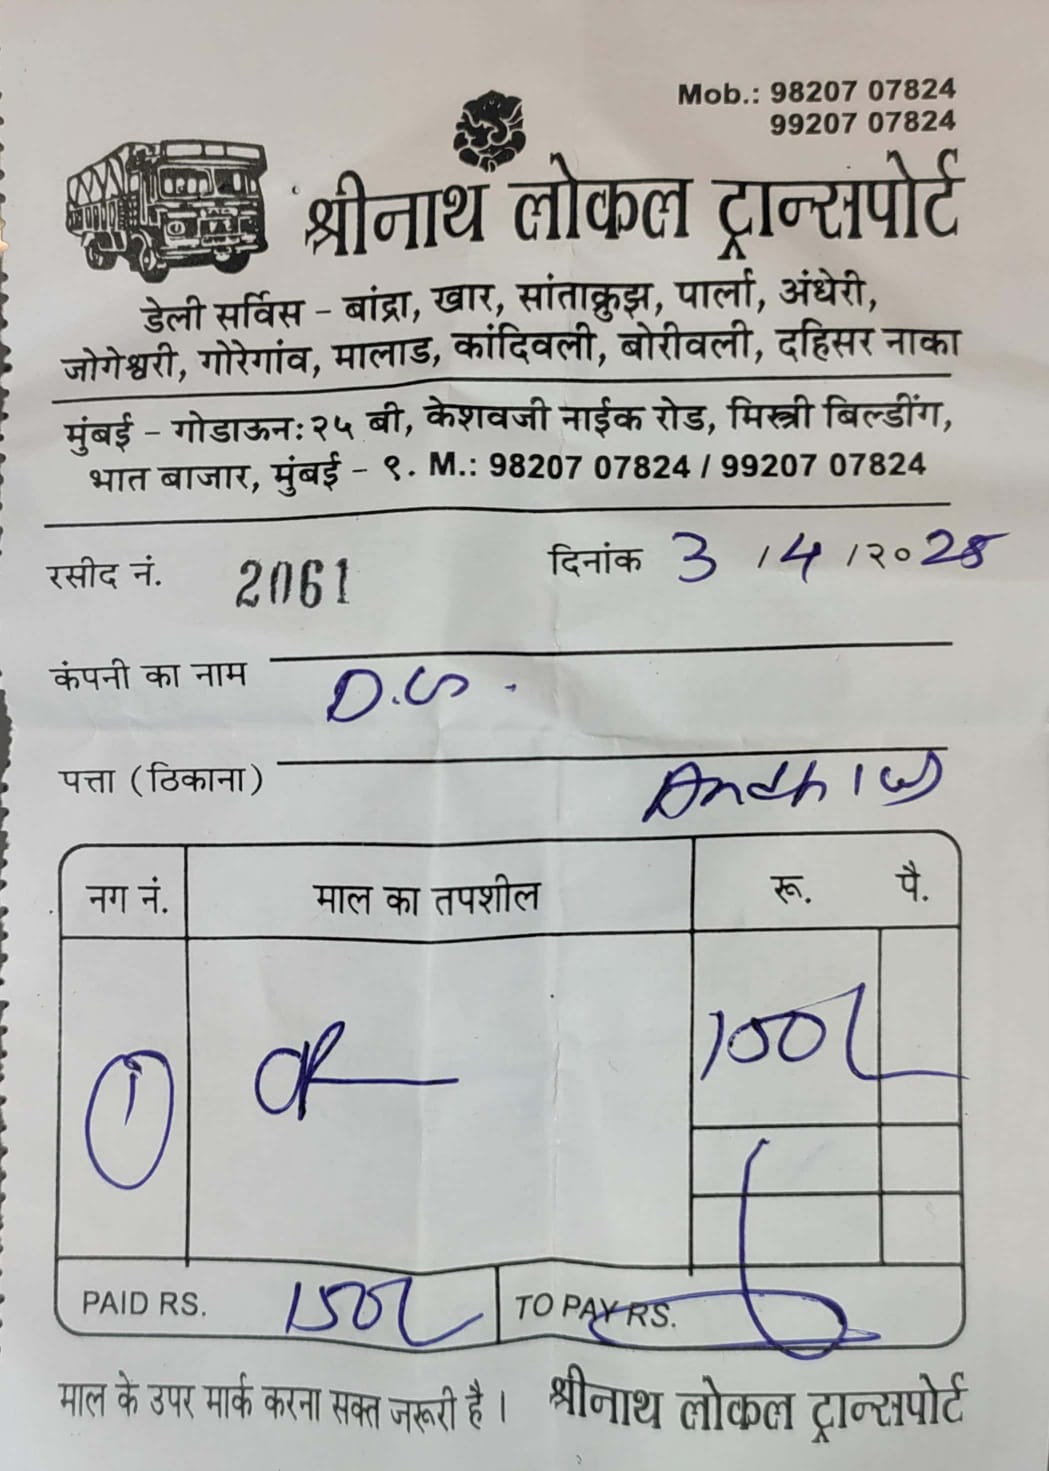 Mob.: 98207 07824
99207 07824
श्रीनाथ लोकल ट्रान्सपोर्ट
डेली सर्विस - बांद्रा, खार, सांताक्रुझ, पार्ला, अंधेरी,
जोगेश्वरी, गोरेगांव, मालाड, कांदिवली, बोरीवली, दहिसर नाका
मुंबई - गोडाऊन: २५ बी, केशवजी नाईक रोड, मिस्त्री बिल्डींग,
भात बाजार, मुंबई - ९. M.: 98207 07824 / 99207 07824
रसीद नं. 2061 दिनांक 3 / 4 / २० 25
कंपनी का नाम D.S.
पत्ता (ठिकाना)
नग नं. माल का तपशील रू. पै.
1
PAID RS. 150/- TO PAY RS.
माल के उपर मार्क करना सक्त जरूरी है । श्रीनाथ लोकल ट्रान्सपोर्ट